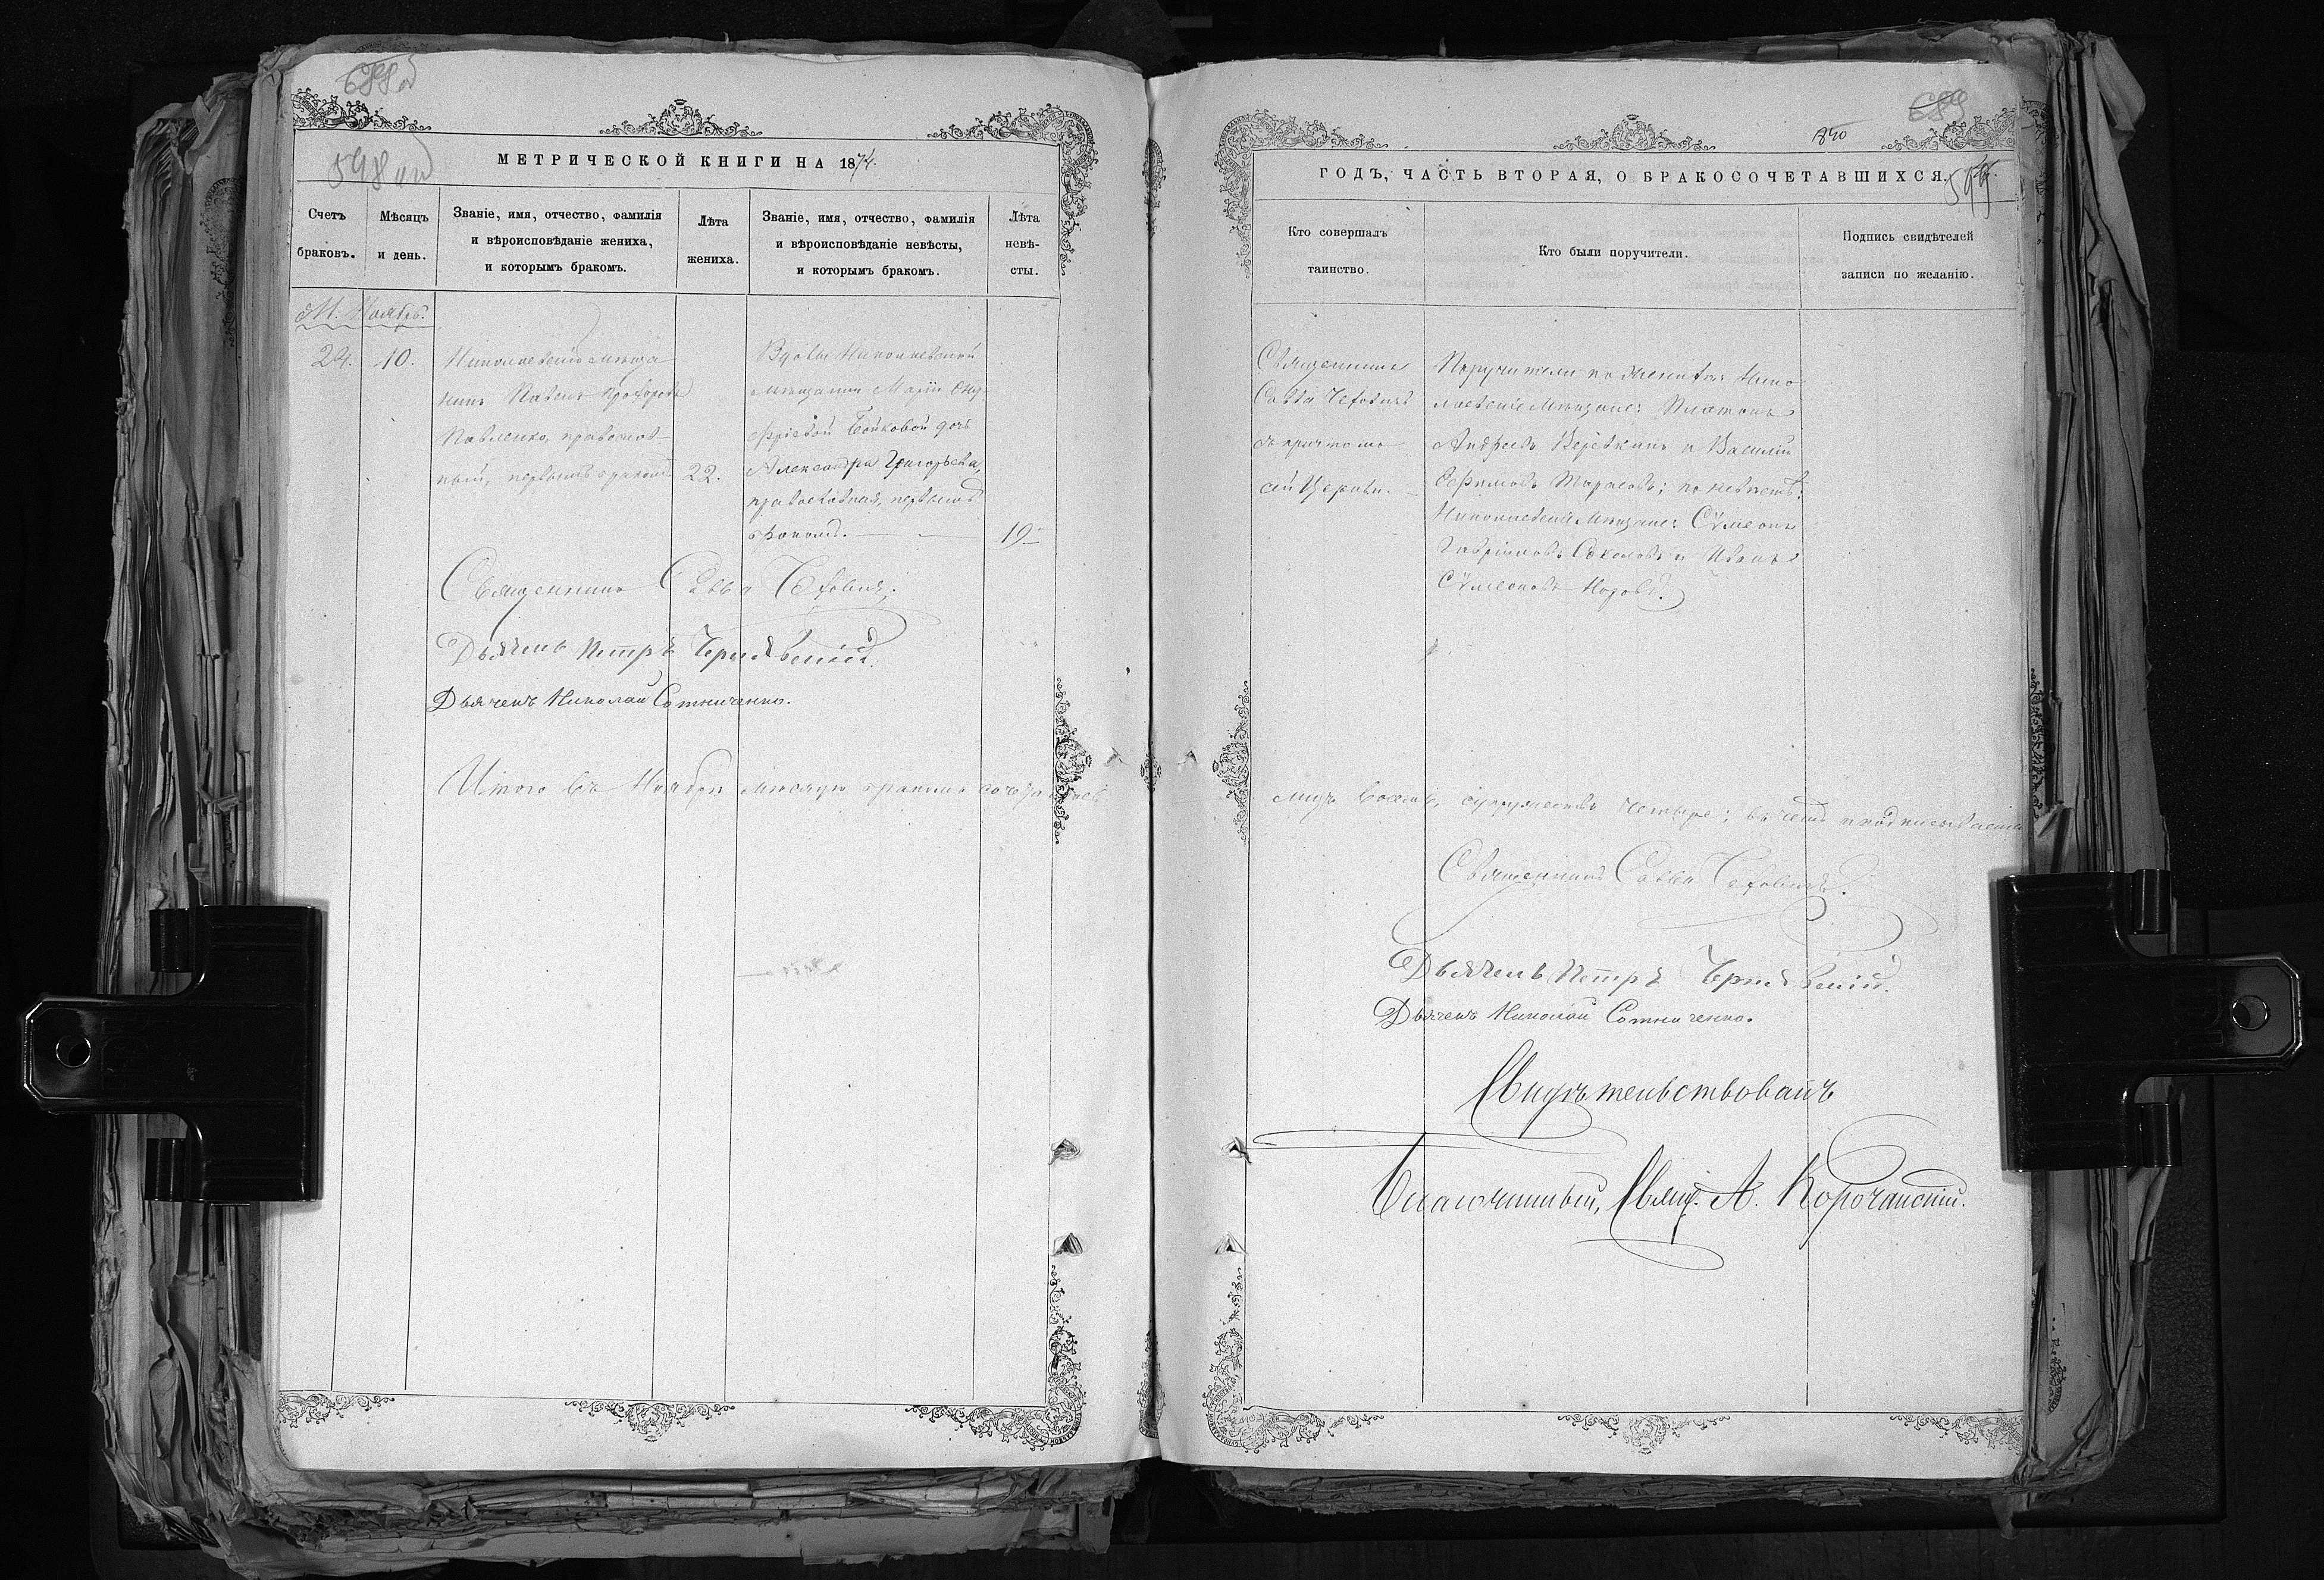 688 об
598 об
МЕТРИЧЕСКОЙ КНИГИ НА 1874.
Счетъ браковъ.
Мѣсяцъ и день.
Званіе, имя, отчество, фамилія
и вѣроисповѣданіе жениха,
и которымъ бракомъ.
Лѣта
жениха.
Званіе, имя, отчество, фамилія
и вѣроисповѣданіе невѣсты,
и которымъ бракомъ.
Лѣта
невѣ-
сты.
М. Ноябрь.
24.
10.
Николаевскій мѣща
нинъ Павелъ Прохоровъ
Павленко, православ-
ный, первымъ бракомъ
22.
Вдовы Николаевской
мѣщанки Маріи Ону
фріевой Бойковой дочь
Александра Григорьева,
православная, первымъ
бракомъ.
19
Священникъ Савва
Дьячекъ Петръ Чернявскій.
Дьячекъ Николай Сотниченко.
Итого въ Ноябрѣ мѣсяцѣ бракомъ сочетавшихся
689
840
599
ГОДЪ, ЧАСТЬ ВТОРАЯ, О БРАКОСОЧЕТАВШИХСЯ.
Кто совершалъ
таинство.
Кто были поручители.
Подпись свидѣтелей
записи по желанію.
Священникъ
Савва
съ причтомъ
сей Церкви.
Поручители по женихѣ: Нико
лаевскіе Мѣщане: Платонъ
Андреевъ и Василій
Ефимовъ Тарасовъ; по невѣстѣ:
Николаевскіе Мѣщане: Сѵмеонъ
Гавріиловъ Соколовъ и Иванъ
Сѵмеоновъ
лицъ восемь, супружествъ четыре; въ чемъ и подписываемся
Священникъ Савва
Дьячекъ Петръ Чернявскій.
Дьячекъ Николай Сотниченко.
Свидѣтельствовалъ
Благочинный, Свящ. А. Корочанскій.